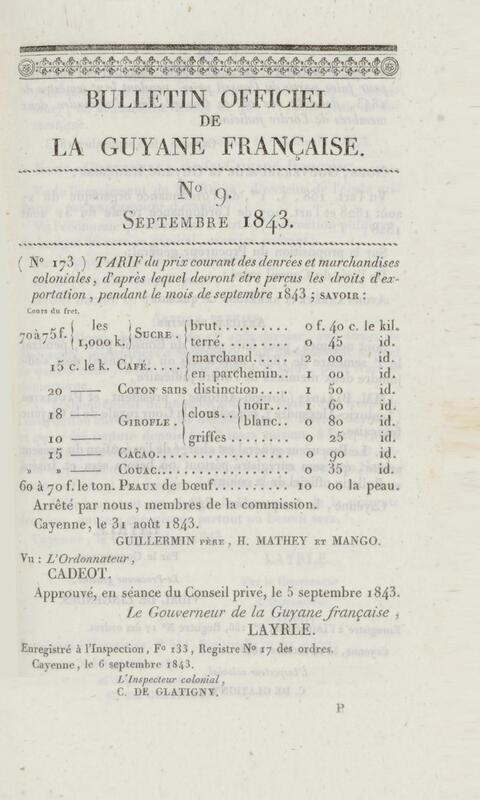 BULLETIN OFFICIEL
DE
LA GUYANE FRANÇAISE.
Nº 9.
SEPTEMBRE 1843.
( Nº 173 ) TARIF du prix courant des denrées et marchandises
coloniales, d'après lequel devront être perçus les droits d'ex-
portation, pendant le mois de septembre 1843 ; SAVOIR :
Cours du fret.
70 à 75 f. { les 1,000 k. } SUCRE . { brut.......... 0 f. 40 c. le kil.
terré......... 0 45 id.
15 c. le k. CAFÉ..... { marchand..... 2 00 id.
en parchemin.. 1 00 id.
20 —— COTON sans distinction.... 1 50 id.
18 —— GIROFLE . { clous.. { noir... 1 60 id.
blanc.. 0 80 id.
10 —— griffes ....... 0 25 id.
15 —— CACAO.................... 0 90 id.
» » —— COUAC.................... 0 35 id.
60 à 70 f. le ton. PEAUX de bœuf........... 10 00 la peau.
Arrêté par nous, membres de la commission.
Cayenne, le 31 août 1843.
GUILLERMIN PÈRE, H. MATHEY ET MANGO.
Vu : L'Ordonnateur,
CADEOT.
Approuvé, en séance du Conseil privé, le 5 septembre 1843.
Le Gouverneur de la Guyane française,
LAYRLE.
Enregistré à l'Inspection, Fº 133, Registre Nº 17 des ordres.
Cayenne, le 6 septembre 1843.
L'Inspecteur colonial,
C. DE GLATIGNY.
P